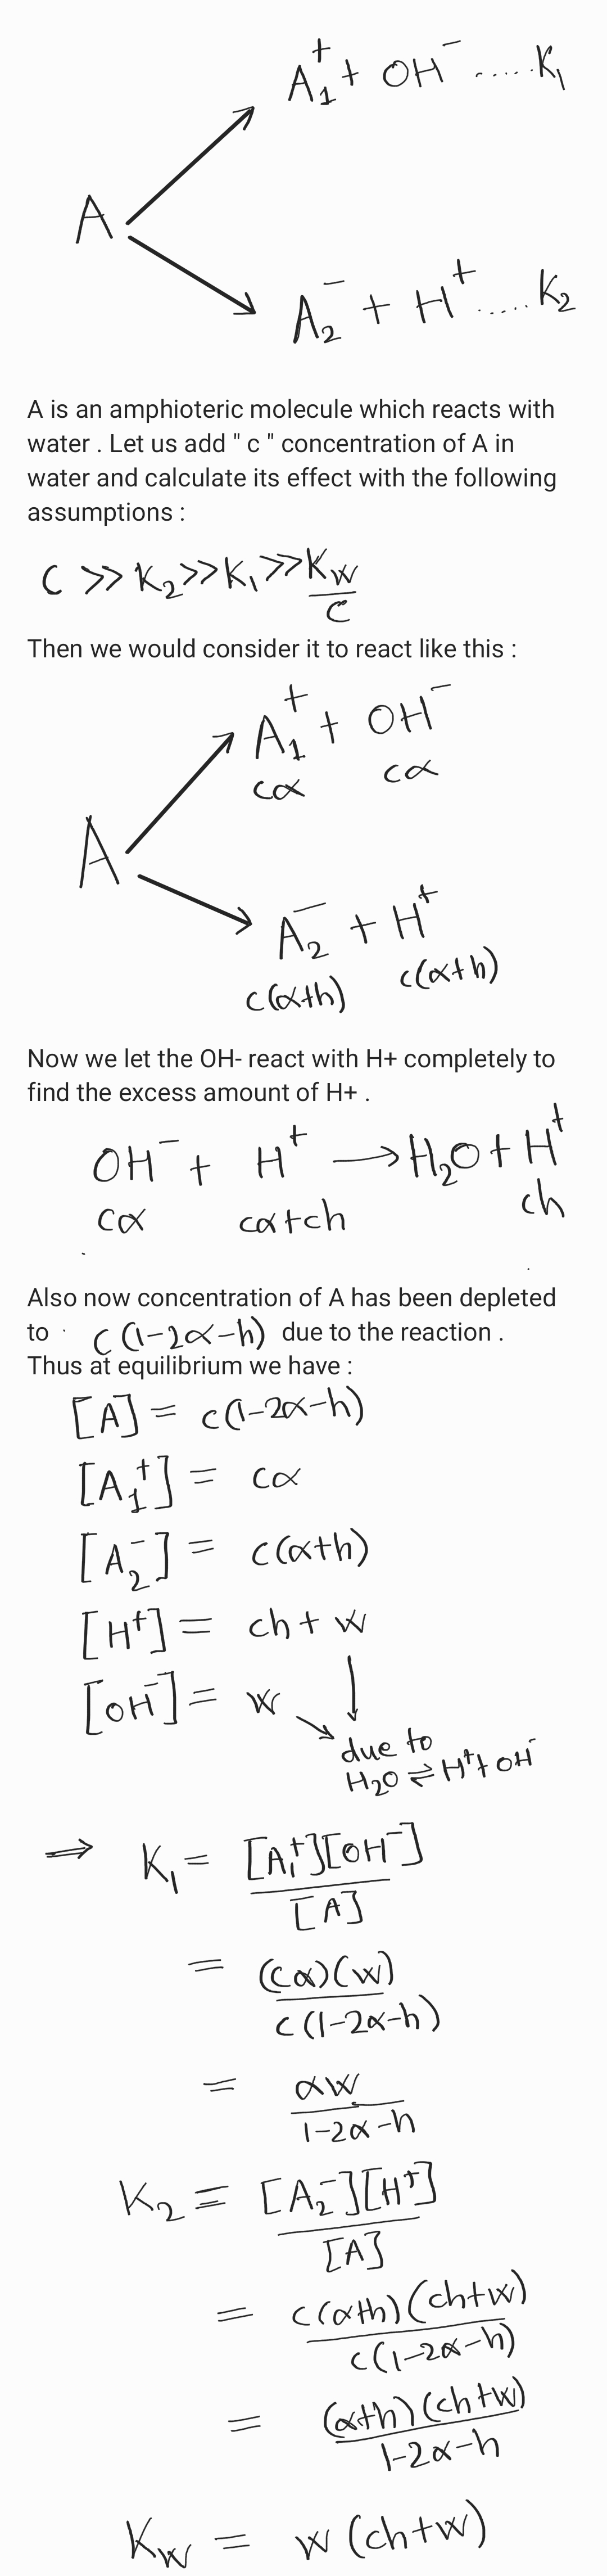 A₁⁺ + OH⁻ ..... K₁
A
A₂⁻ + H⁺ ..... K₂
A is an amphioteric molecule which reacts with
water . Let us add " c " concentration of A in
water and calculate its effect with the following
assumptions :
C >> K₂ >> K₁ >> K_w/C
Then we would consider it to react like this :
A₁⁺ + OH⁻
cα cα
A
A₂⁻ + H⁺
c(α+h) c(α+h)
Now we let the OH- react with H+ completely to
find the excess amount of H+ .
OH⁻ + H⁺ → H₂O + H⁺
cα cα+ch ch
Also now concentration of A has been depleted
to c(1-2α-h) due to the reaction .
Thus at equilibrium we have :
[A] = c(1-2α-h)
[A₁⁺] = cα
[A₂⁻] = c(α+h)
[H⁺] = ch + w
[OH⁻] = w
due to
H₂O ⇌ H⁺ + OH⁻
⇒ K₁ = [A₁⁺][OH⁻]/[A]
= (cα)(w)/c(1-2α-h)
= αw/1-2α-h
K₂ = [A₂⁻][H⁺]/[A]
= c(α+h)(ch+w)/c(1-2α-h)
= (α+h)(ch+w)/1-2α-h
K_w = w(ch+w)